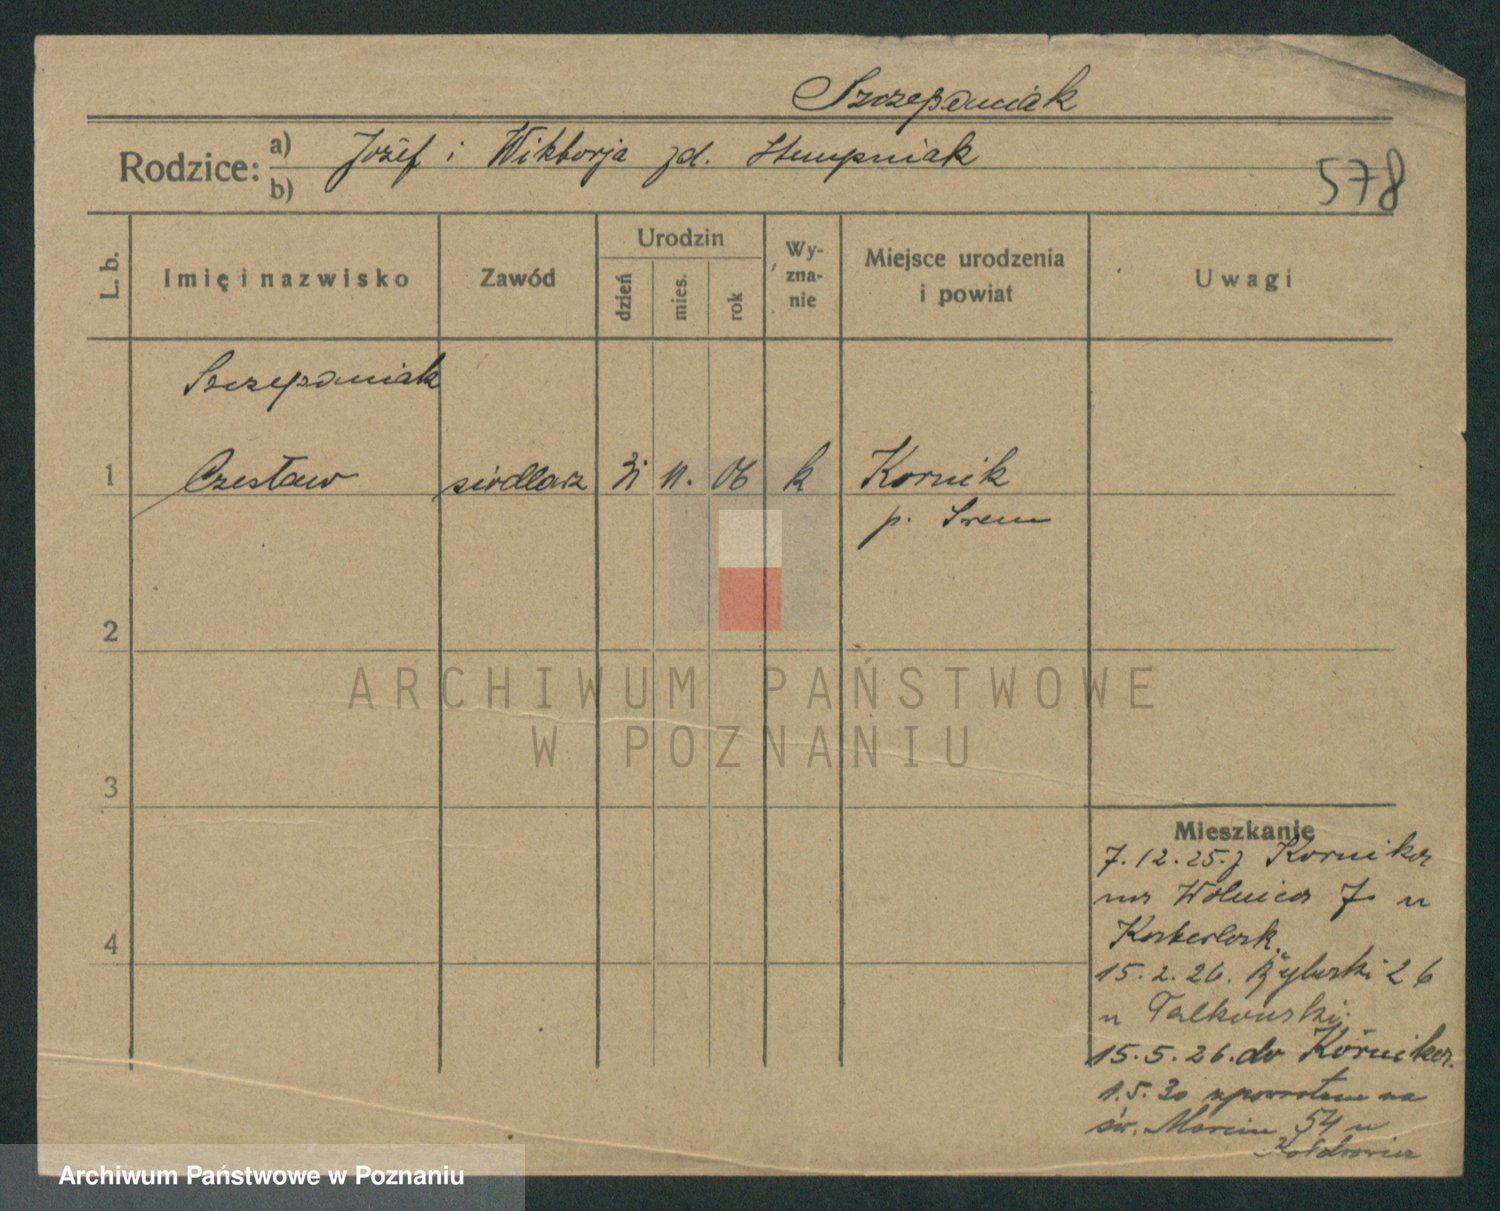 Szczepaniak
Rodzice: a) Józef i Wiktorja zd. Stempniak
b)
578
L. b.
Imię i nazwisko
Zawód
Urodzin
dzień
mies.
rok
Wy-
zna-
nie
Miejsce urodzenia
i powiat
Uwagi
Szczepaniak
1 Czesław siodlarz 11. 06 k Kornik
p. Srem
2
ARCHIWUM PAŃSTWOWE
W POZNANIU
3
Mieszkanie
7.12.25. z Kornika
na Wolnica 7 u
4
15.2.26. Rybaki 26
u Talkowski
15.5.26. do Kórnika.
1.5.30 zpowrotem na
św. Marcin 54 u
Archiwum Państwowe w Poznaniu